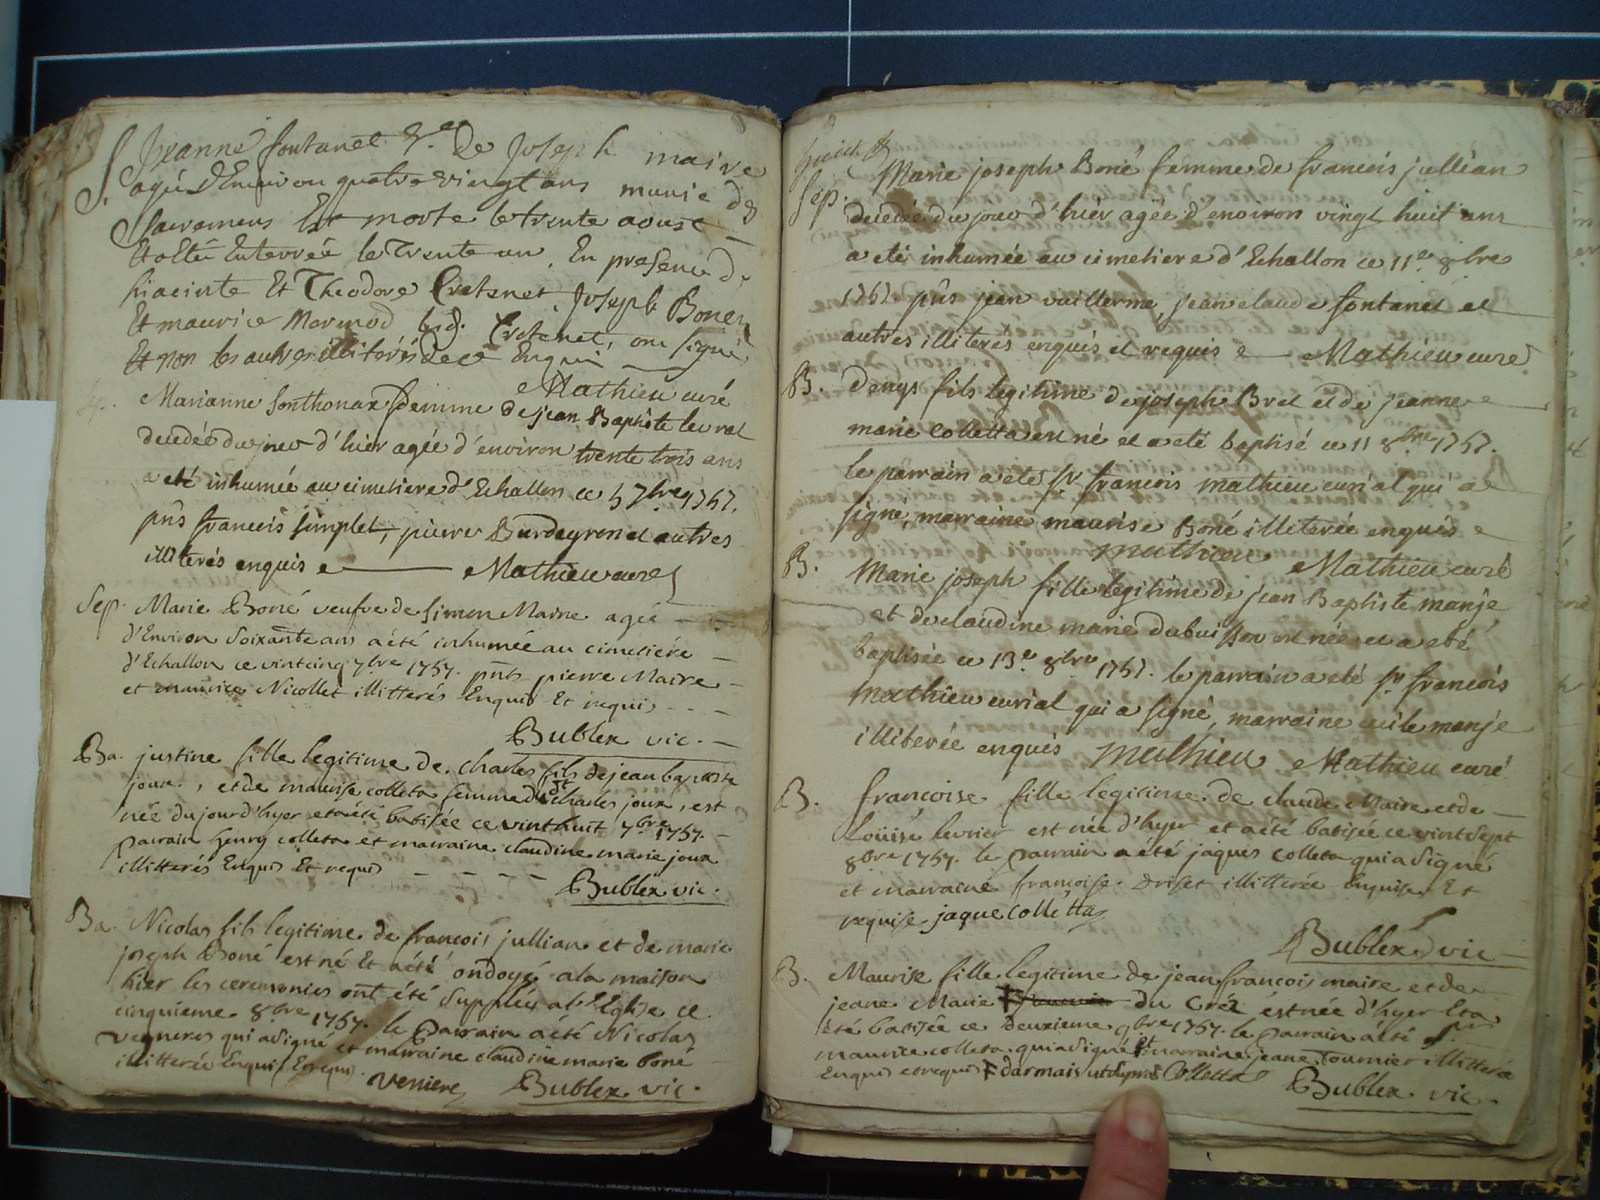 S. Jeanne fontanet v.e De Joseph maire
agée D'Environ quatre vingt ans munie des
Sacremens Est morte le trente aoust
Et a Eté Enterrée le Trente un, En presence de
hiacinte Et Theodore Cretenet, Joseph Bonen
Et maurice Mermod, Cretenet, ont signé,
Et non les autres illiterés de ce Enquis
Mathieu curé
Marianne Sonthonax femme de jean Baptiste levrat
decedée du jour d'hier agée d'environ trente trois ans
a eté inhumée au cimetiere d'Echallon ce 5 7bre 1757.
pnts francois simplet, pierre Burdeyron et autres
illiterés enquis e Mathieu curé
Sep. Marie Boné veufve de simon Maire agée
d'Environ Soixante ans a été inhumée au cimetiére
d'Echallon ce vint cinq 7bre 1757. pnts pierre Maire
et maurice Nicollet illitterés Enquis Et requis
Bublex vic.
Ba. justine fille legitime de charles fils de jean baptiste
joux, et de maurise colleta femme du dt charles joux, est
née du jour d'hyer et a été batisée ce vint huit 7bre 1757.
parrain henry colleta et marraine claudine marie joux
illitterés Enquis Et requis
Bublex vic.
Ba. Nicolas fils legitime de francois jullian et de marie
joseph Boné est né Et a été ondoyé a la maison
hier les ceremonies ont été Supplées a l'Eglise ce
cinquieme 8bre 1757. le Parrain a été Nicolas
qui a signé et marraine claudine marie boné
illitterée Enquis Et requis.
Bublex vic.
Sep. Marie joseph Boné femme de francois jullian
decedée du jour d'hier agée d'environ vingt huit ans
a eté inhumée au cimetiere d'Echallon ce 11e 8bre
1757 pnts jean vuillerme, jean claude fontanet et
autres illiterés enquis et requis e Mathieu curé
B. denys fils legitime de joseph Bret et de jeanne
marie colletta est né et a eté baptisé ce 11 8bre 1757.
le parrain a eté sr francois mathieu curial qui a
signé, marraine maurise Boné illiterée enquise
mathieu Mathieu curé
B. Marie joseph fille legitime de jean Baptiste manje
et de claudine marie dubuisson est née et a eté
baptisée ce 13e 8bre 1757. le parrain a eté sr francois
mathieu curial qui a signé, marraine manje
illiterée enquis mathieu Mathieu curé
B. francoise fille legitime de claude Maire et de
Loüise levrier est née d'hyer et a été batisée ce vint sept
8bre 1757. le Parrain a été jaques colleta qui a signé
et marraine francoise driset illitterée Enquise Et
requise. jaque Colletta
Bublex vic
B. Maurise fille legitime de jean francois maire et de
jeane Marie du Crét est née d'hyer Et a
été batisée ce deuxieme 9bre 1757. le Parrain a été sr
maurice colleta qui a signé Et marraine jeane Tournier illitterée
Enquis et requis Colletta Bublex vic.